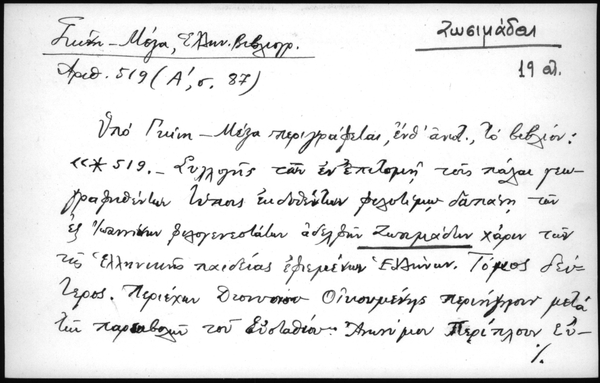 Γκίνη - Μέξα, Ἑλλην. Βιβλιογρ.
Ζωσιμάδαι
Ἀριθ. 519 (Α΄, σ. 87)
19 αἰ.
Ὑπό Γκίνη - Μέξα περιγράφεται, ἔνθ' ἀνωτ., τό βιβλίον:
«* 519. - Συλλογῆς τῶν ἐν ἐπιτομῇ τοῖς πάλαι γεω-
γραφηθέντων τύποις ἐκδοθέντων φιλοτίμῳ δαπάνῃ τῶν
ἐξ Ἰωαννίνων φιλογενεστάτων ἀδελφῶν Ζωσιμάδων χάριν τῶν
τῆς Ἑλληνικῆς παιδείας ἐφιεμένων Ἑλλήνων. Τόμος δεύ-
τερος. Περιέχων Διονυσίου Οἰκουμένης περιήγησιν μετά
τῶν παρεκβολῶν τοῦ Εὐσταθίου. Ἀνωνύμου Περίπλουν Εὐ-
./.